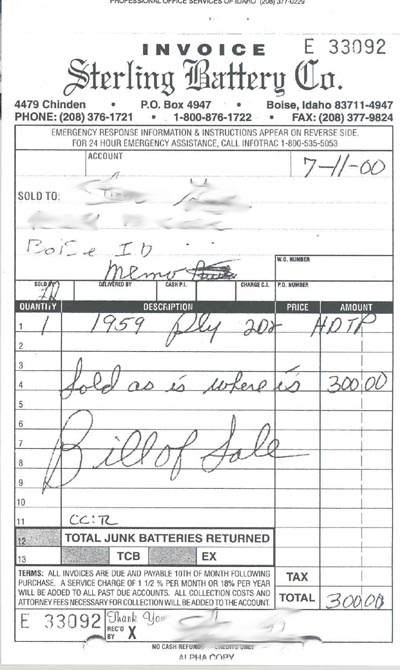 PROFESSIONAL OFFICE SERVICES OF IDAHO (208) 377-0229
INVOICE E 33092
Sterling Battery Co.
4479 Chinden • P.O. Box 4947 • Boise, Idaho 83711-4947
PHONE: (208) 376-1721 • 1-800-876-1722 • FAX: (208) 377-9824
EMERGENCY RESPONSE INFORMATION & INSTRUCTIONS APPEAR ON REVERSE SIDE.
FOR 24 HOUR EMERGENCY ASSISTANCE, CALL INFOTRAC 1-800-535-5053
ACCOUNT 7-11-00
SOLD TO:
Boise ID
Memo
W.O. NUMBER
SOLD BY DELIVERED BY CASH P.I. CHARGE C.I. P.O. NUMBER
QUANTITY DESCRIPTION PRICE AMOUNT
1 1 1959 Ply 2dr HDTP
2
3
4 Sold as is where is 300.00
5
6
7 Bill of Sale
8
9
10
11 CC:
12 TOTAL JUNK BATTERIES RETURNED
13 TCB EX
TERMS: ALL INVOICES ARE DUE AND PAYABLE 10TH OF MONTH FOLLOWING
PURCHASE. A SERVICE CHARGE OF 1 1/2 % PER MONTH OR 18% PER YEAR
WILL BE ADDED TO ALL PAST DUE ACCOUNTS. ALL COLLECTION COSTS AND
ATTORNEY FEES NECESSARY FOR COLLECTION WILL BE ADDED TO THE ACCOUNT.
TAX
TOTAL 300.00
E 33092 Thank You
REC'D BY X
NO CASH REFUNDS CREDITS ONLY
ALPHA COPY